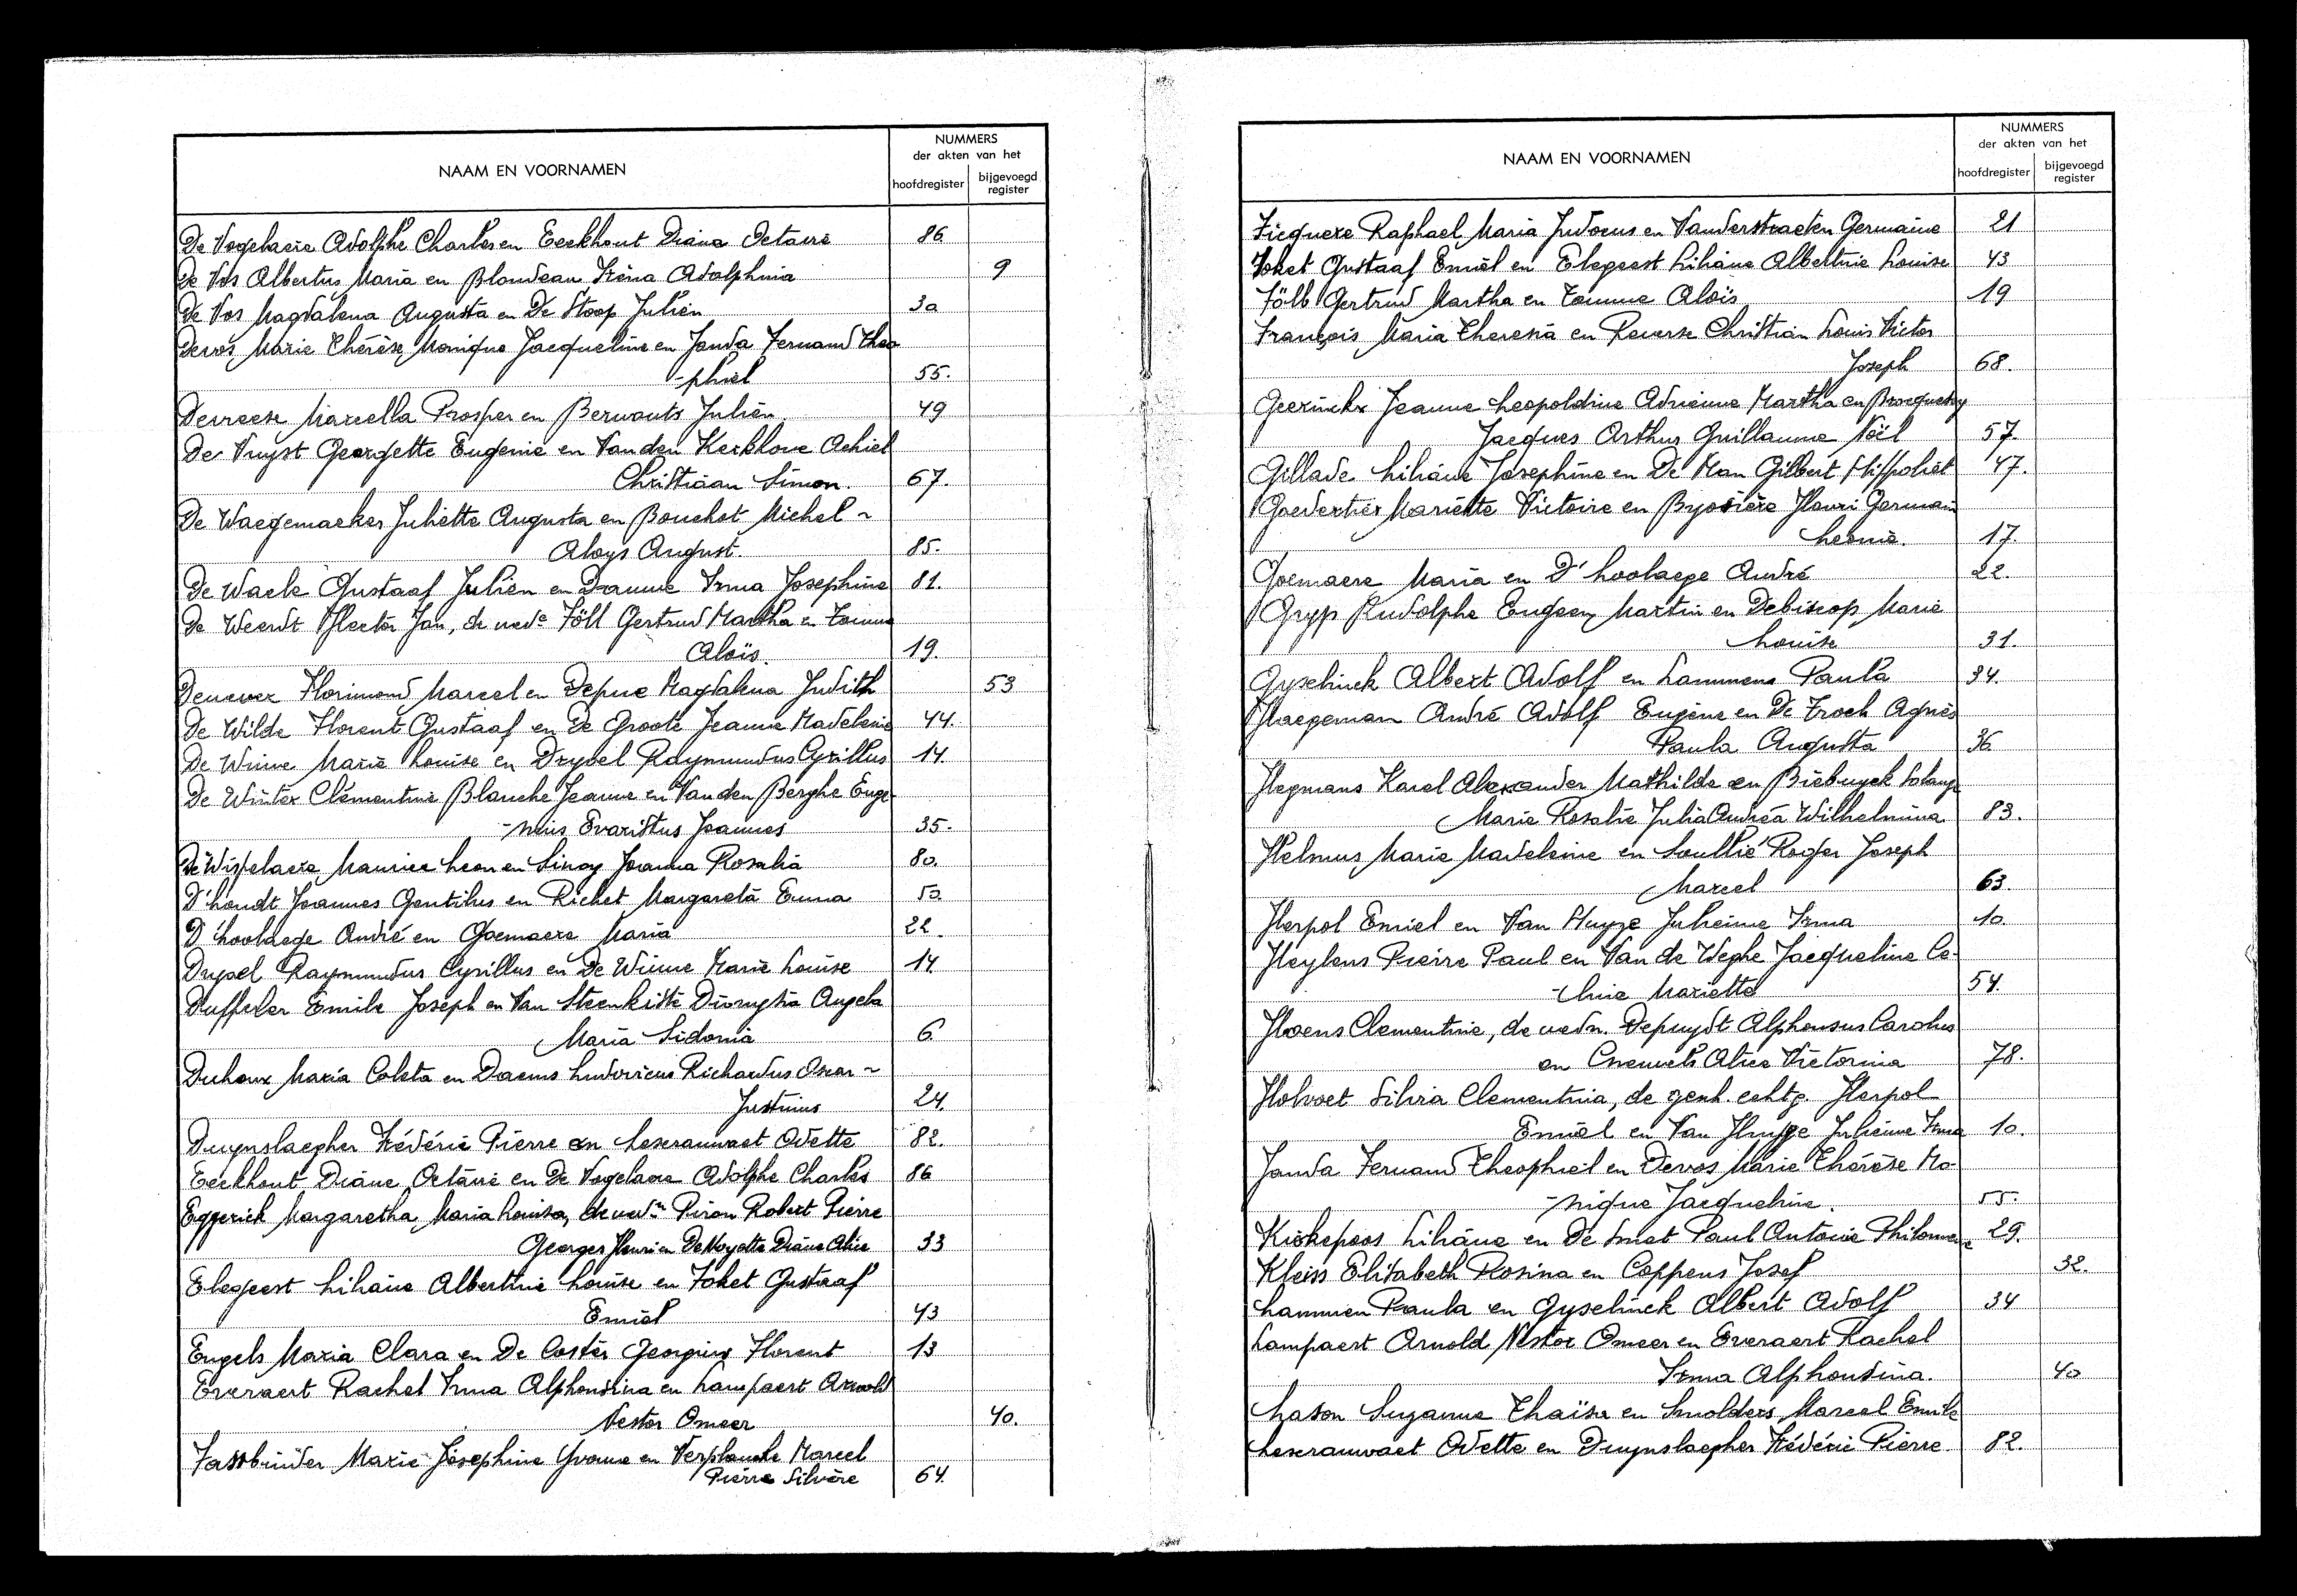 NAAM EN VOORNAMEN
NUMMERS
der akten van het
hoofdregister
bijgevoegd register
De Vogelaere Adolphe Charles en Eeckhout Diana Octavie 86.
De Vos Albertus Maria en Blondeau Irèna Adolphina 9
De Vos Magdalena Augusta en De Stoop Julien 30
Devos Marie Thérèse Monique Jacqueline en Janda Fernand Theo
-phiel 55.
Devreese Marcella Prosper en Berwouts Julien 49
De Vuyst Georgette Eugenie en Van den Kerkhove Achiel
Christiaan Simon. 67.
De Waegemaeker Juliette Augusta en Bouchot Michel ~
Aloys August. 85.
De Waele Gustaaf Julien en Damme Irma Josephine 81.
De Weerdt Hector Jan, de wede Föll Gertrud Martha en Tomme
Aloïs. 19.
Dewever Florimond Marcel en Depue Magdalena Judith 53
De Wilde Florent Gustaaf en De Groote Jeanne Madeleine 44.
De Winne Marie Louise en Drypel Raymundus Cyrillus 14.
De Winter Clémentine Blanche Jeanne en Van den Berghe Euge
-nius Evaristus Joannes 35.
De Wispelaere Maurice Leon en Sinoy Joanna Rosalia 80.
D'hondt Joannes Gentilus en Richet Margareta Emma 50.
D'hoolaege André en Goemaere Maria 22.
Drypel Raymundus Cyrillus en De Winne Marie Louise 14
Duffeler Emile Joseph en Van Steenkiste Dionysia Angela
Maria Sidonia 6.
Duhoux Maria Coleta en Daems Ludovicus Richardus Oscar ~
Justinus 24.
Duynslaegher Frédéric Pierre en Leseramwaet Odette 82.
Eeckhout Diane Octavie en De Vogelaere Adolphe Charles 86
Eggerick Margaretha Maria Louisa, de wedn Piron Robert Pierre
Georges Henri en De Moyette Diane Alice 33
Elegeest Liliane Albertine Louise en Foket Gustaaf
Emiel 43
Engels Maria Clara en De Coster Georgius Florent 13
Everaert Rachel Irma Alphonsina en Lampaert Arnold
Nestor Omeer 40.
Fassbinder Marie Josephine Yvonne en Verplancke Marcel
Pierre Silvère 64.
NAAM EN VOORNAMEN
NUMMERS
der akten van het
hoofdregister
bijgevoegd register
Ficquere Raphael Maria Judocus en Vanderstraeten Germaine 21
Foket Gustaaf Emiel en Elegeest Liliane Albertine Louise 43
Föll Gertrud Martha en Tomme Aloïs 19
François Maria Theresia en Reverse Christian Louis Victor
Joseph 68.
Geerinckx Jeanne Leopoldine Adrienne Martha en Brocqueley
Jacques Arthur Guillaume Noël 57.
Gillade Liliane Josephine en De Man Gilbert Hippoliet 47.
Goedertier Mariette Victoire en Byosière Henri Germain
Leonie. 17.
Goemaere Maria en D'hoolaege André 22.
Gryp Rudolphe Eugeen Martin en Debiscop Marie
Louise 31.
Gyselinck Albert Adolf en Lammens Paula 34.
Haegeman André Adolf Eugène en De Troch Agnès
Paula Augusta 36
Hegmans Karel Alexander Mathilde en Biebuyck Solange
Marie Rosalie Julia Andrea Wilhelmina 83.
Helmus Marie Madeleine en Soullié Roger Joseph
Marcel 63.
Herpol Emiel en Van Huyze Julienne Irma 10.
Heylens Pierre Paul en Van de Weghe Jacqueline Ce-
-line Mariette 54.
Hoens Clementine, de wedn. Depuydt Alphonsus Carolus
en Alice Victorina 78.
Holvoet Silvia Clementina, de gesch. echtg. Herpol
Emiel en Van Huyze Julienne Irma 10.
Janda Fernand Theophiel en Devos Marie Thérèse Mo-
-nique Jacqueline. 55.
Kiekepoos Liliane en De Smet Paul Antoine Philomene 29.
Kleiss Elisabeth Rosina en Coppens Josef 32.
Lammen Paula en Gyselinck Albert Adolf 34
Lampaert Arnold Nestor Omeer en Everaert Rachel
Irma Alphonsina. 40
Lason Suzanne Thaïsa en Smolders Marcel Emile
Leseramwaet Odette en Duynslaegher Frédéric Pierre 82.